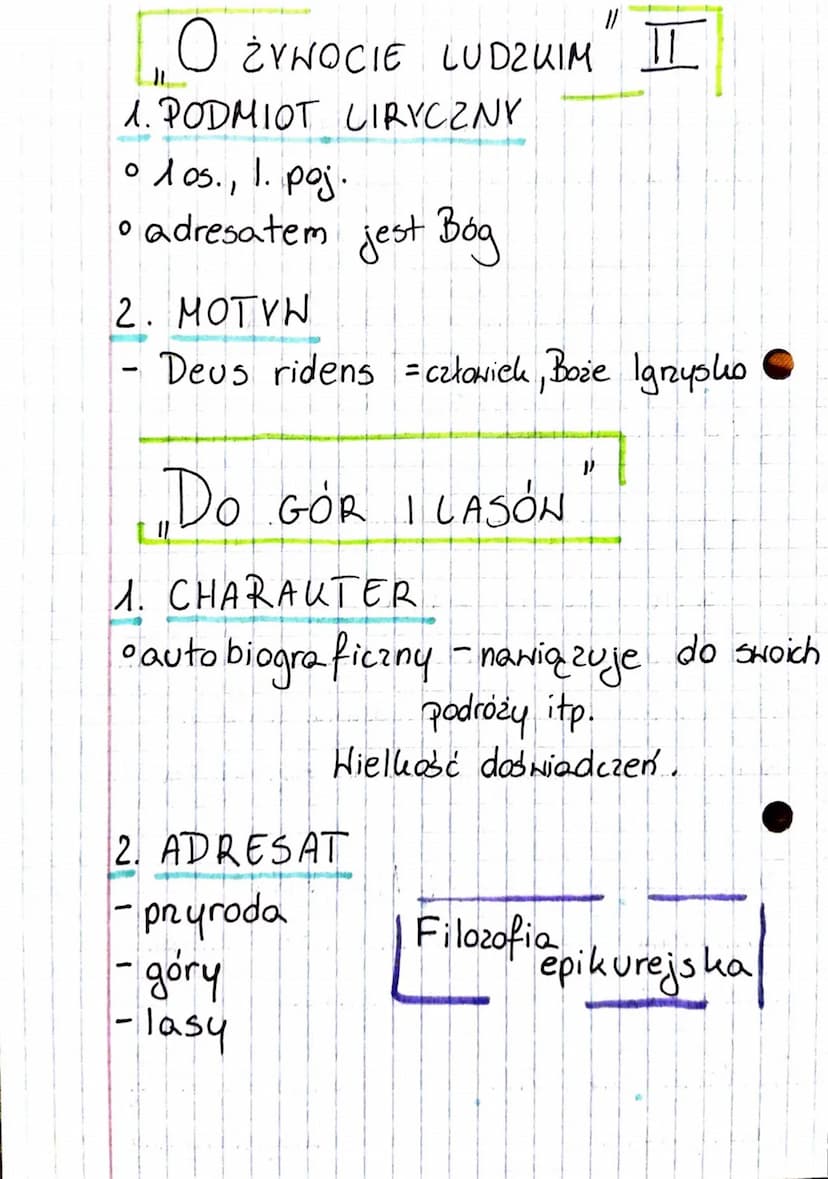 „O ŻYWOCIE LUDZKIM” II
1. PODMIOT LIRYCZNY
o 1 os., l. poj.
o adresatem jest Bóg
2. MOTYW
- Deus ridens = człowiek, Boże Igrzysko
„DO GÓR I LASÓW”
1. CHARAKTER
o autobiograficzny - nawiązuje do swoich
podróży itp.
Wielkość doświadczeń.
2. ADRESAT
- przyroda
- góry
- lasy
Filozofia
epikurejska